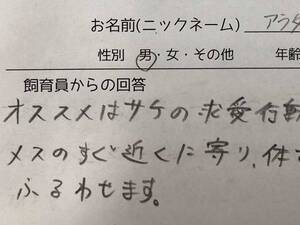 お名前(ニックネーム) アラタ
性別 男・女・その他 年齢
飼育員からの回答
オススメはサケの求愛行動
メスのすぐ近くに寄り、体を
ふるわせます。